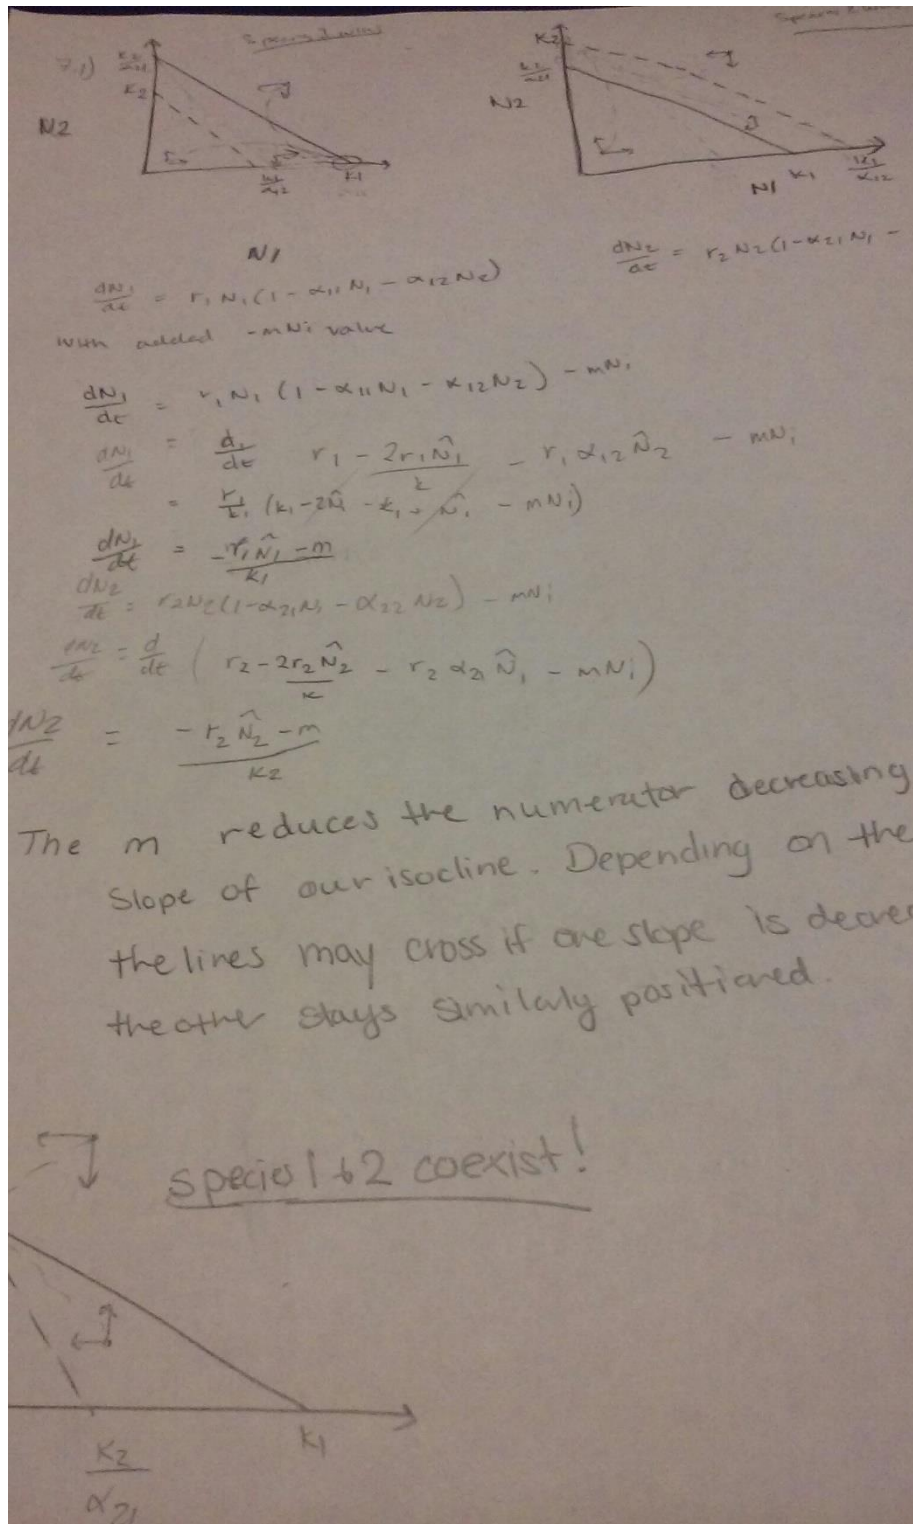 7.1)
K2/α21
K2
N2
K1
N1
K2
N2
N1
K1
K1/α12
dN1/dt = r1N1(1-α11N1-α12N2)
dN2/dt = r2N2(1-α21N1-
with added -mNi value
dN1/dt = r1N1(1-α11N1-α12N2)-mNi
dN1/dt = d1/dt r1-2r1N̂1/k - r1α12N̂2 - mNi
= r1/k1(k1-2N̂1-k1+N̂1-mNi)
dN1/dt = -r1N̂1-m/k1
dN2/dt = r2N2(1-α21N1-α22N2)-mNi
dN2/dt = d/dt(r2-2r2N̂2/k - r2α21N̂1 - mNi)
dN2/dt = -r2N̂2-m/k2
The m reduces the numerator decreasing
slope of our isocline. Depending on the
the lines may cross if one slope is decre
the other stays similarly positioned.
species 1 & 2 coexist!
K1
K2/α21